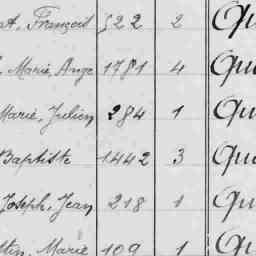 at, François 522 2 Qu
, Marie, Ange 1781 4 Qu
Marie, Julien 284 1 Qu
Baptiste 1442 3 Qu
Joseph, Jean 218 1 Qu
tin, Marie 109 1 Qu